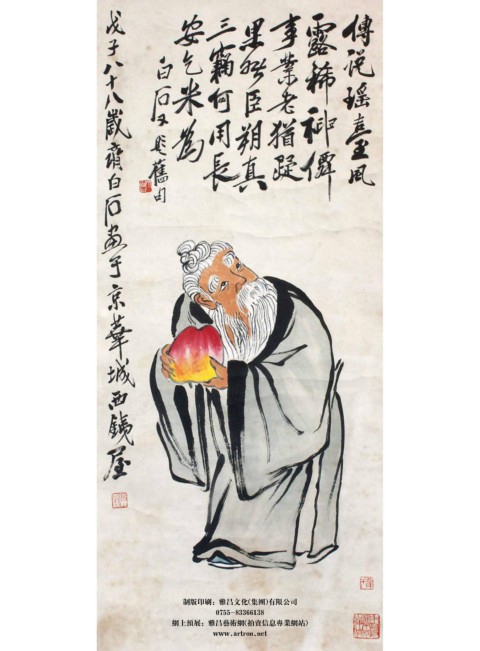 傳說瑤臺風
露稀神僊
事業老猶疑
果然臣朔真
三竊何用長
安乞米為
白石又題舊句
戊子八十八歲齊白石畫于京華城西鐵屋
制版印刷：雅昌文化(集團)有限公司
0755-83366138
網上預展：雅昌藝術網(拍賣信息專業網站)
www.artron.net